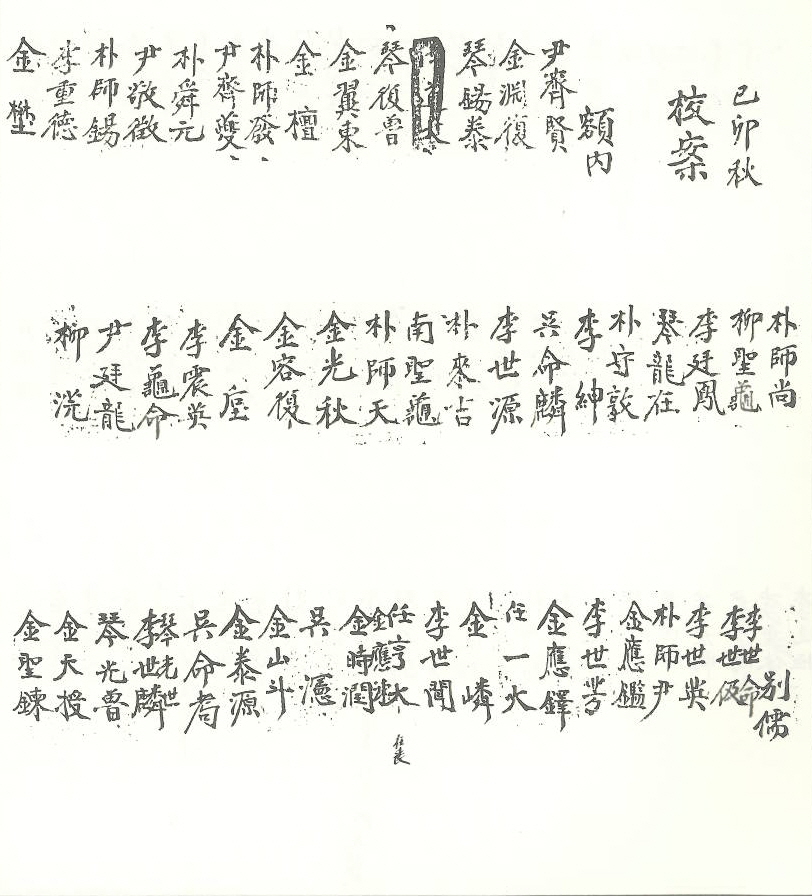 己卯秋
校案
額內
尹齊賢
金淵復
琴錫泰
琴復魯
金翼東
金 檀
朴師發
尹齊夔
朴舜元
尹敬徵
朴師錫
李重德
金 樊
朴師尚
柳聖龜
李廷鳳
琴龍在
朴守敦
李 紳
吳命麟
李世源
朴來吉
南聖龜
朴師天
金光秋
金容復
金 垕
李震英
李龜命
尹廷龍
柳 浣
別儒
李世命
李世伋
李世英
朴師尹
金應鑑
李世芳
金應鐸
任一火
金 嶙
李世聞
任亨大
金應洙
金時潤
吳 濾
金山斗
金泰源
吳命耇
琴光世
李世麟
琴光魯
金天授
金聖鍊